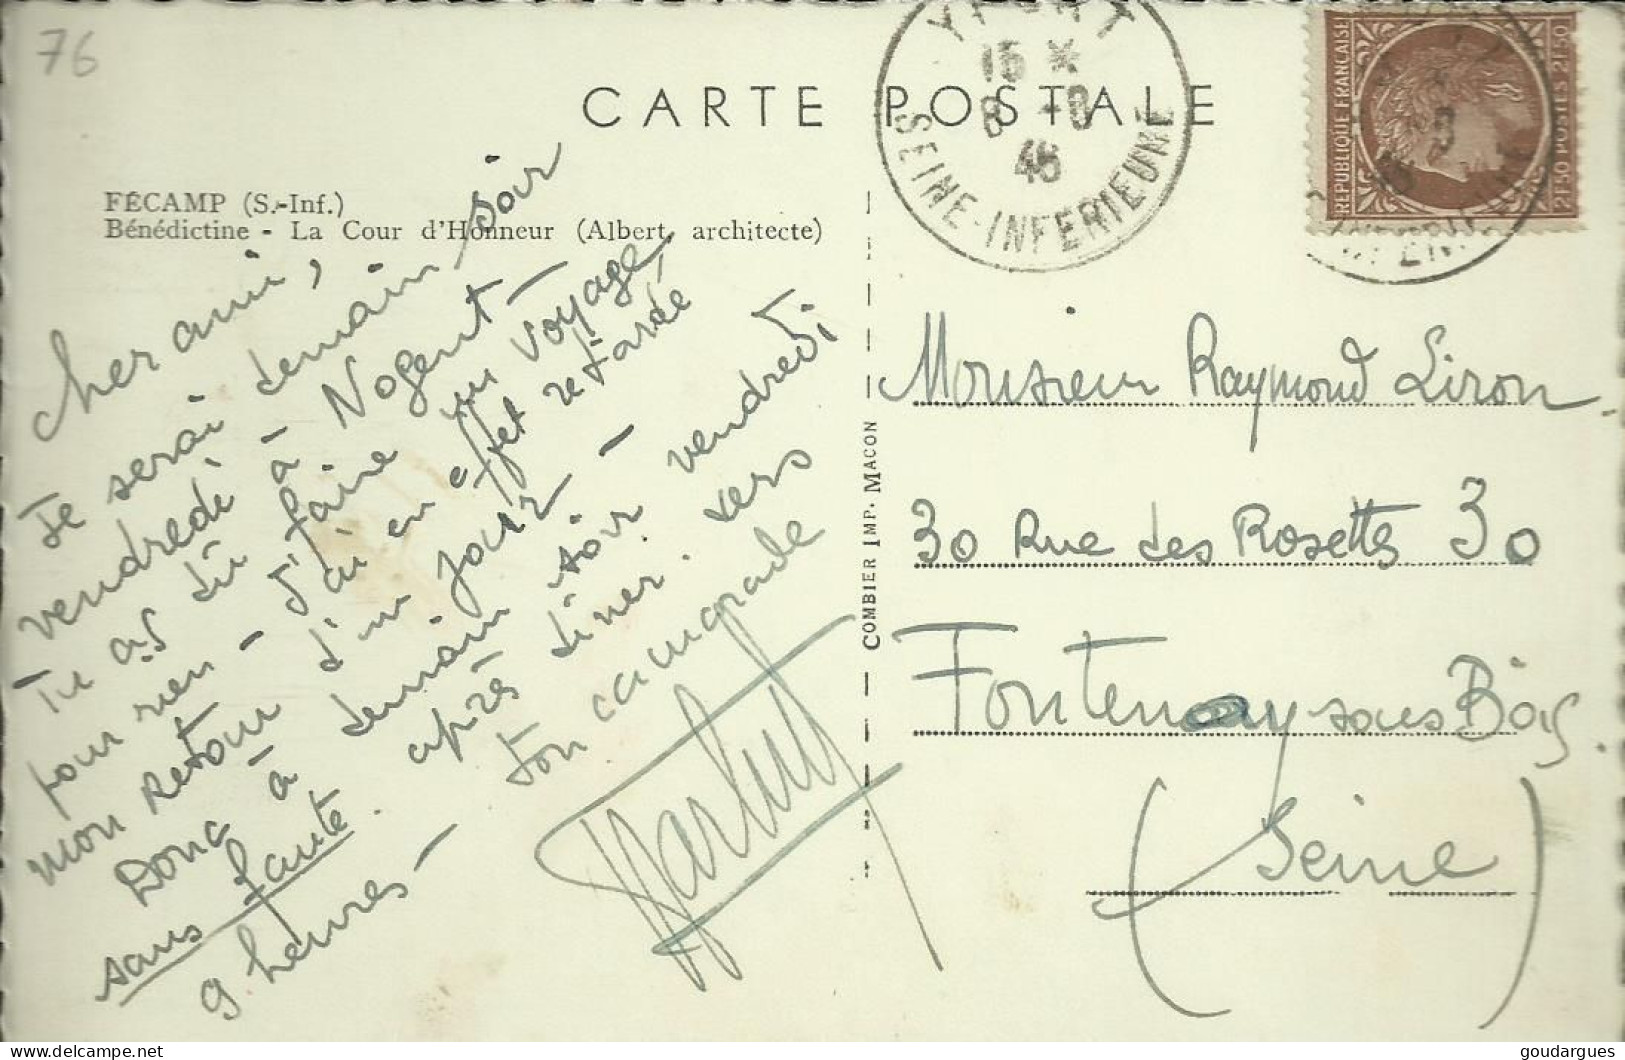 76
CARTE POSTALE
FÉCAMP (S.-Inf.)
Bénédictine - La Cour d'Honneur (Albert, architecte)
YPORT
15 *
8 -8
46
SEINE-INFERIEURE
REPUBLIQUE FRANÇAISE
2F50 POSTES 2F50
Cher ami,
Je serai demain soir
vendredi à Nogent -
Tu as dû faire un voyage
pour rien - J'ai en effet retardé
mon retour d'un jour -
Donc à demain soir vendredi
sans faute. après diner. vers
9 heures - ton camarade
COMBIER IMP. MACON
Monsieur Raymond Liron.
30 Rue des Rosettes 30
Fontenay sous Bois.
(Seine)
delcampe.net
goudargues